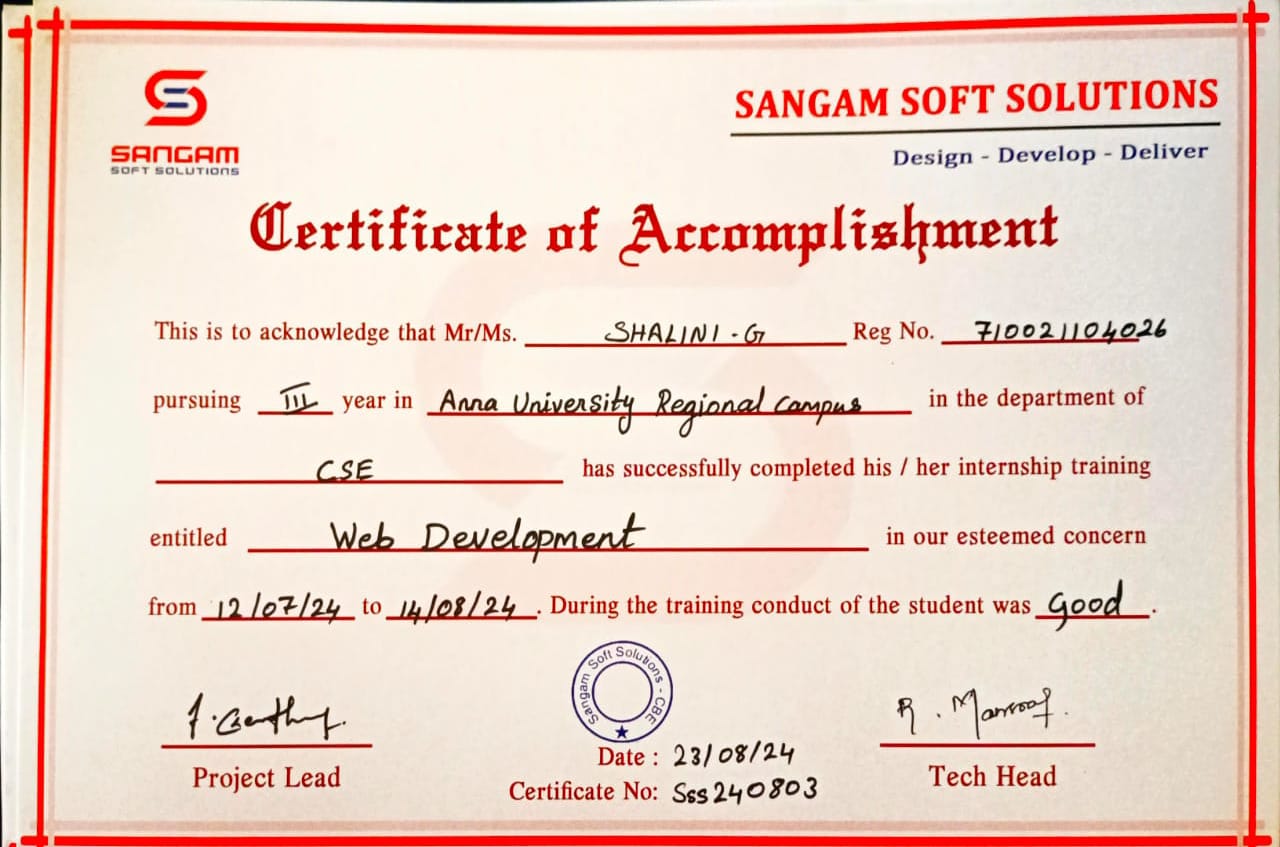 SANGAM
SOFT SOLUTIONS
SANGAM SOFT SOLUTIONS
Design - Develop - Deliver
Certificate of Accomplishment
This is to acknowledge that Mr/Ms. SHALINI - G Reg No. 710021104026
pursuing III year in Anna University Regional Campus in the department of
CSE has successfully completed his / her internship training
entitled Web Development in our esteemed concern
from 12/07/24 to 14/08/24 . During the training conduct of the student was Good .
Sangam Soft Solutions - CBE
Date : 23/08/24
Certificate No: SSS240803
Project Lead
Tech Head